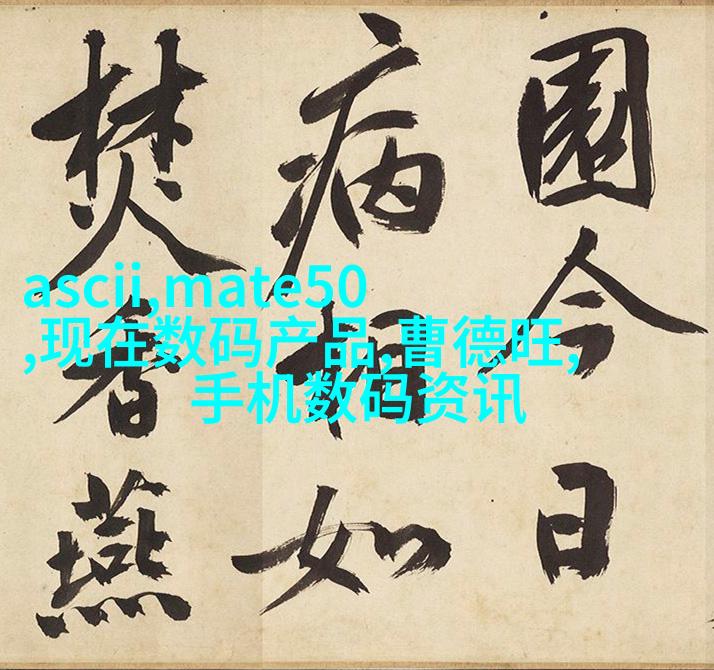 園今日
病相如
焚香燕
ascii,mate50
,现在数码产品,曹德旺,
手机数码资讯